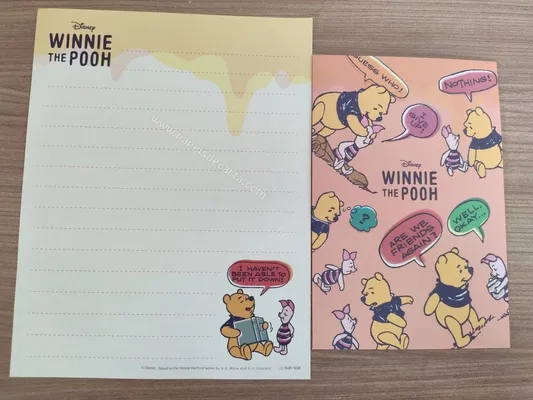 Disney
WINNIE
THE POOH
I HAVEN'T
BEEN ABLE TO
PUT IT DOWN!
GUESS WHO!
NOTHING!
Disney
WINNIE
THE POOH
?
ARE WE
FRIENDS
AGAIN?
WELL,
OKAY...
© Disney. Based on the "Winnie the Pooh" works by A.A. Milne and E.H. Shepard.